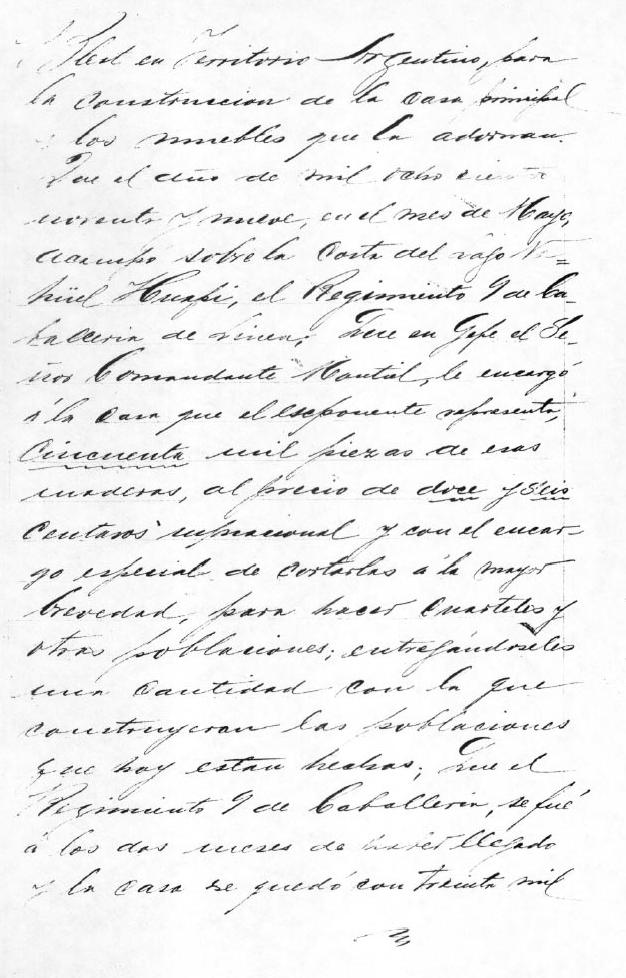 Blest en Territorio Argentino, para
la construccion de la casa principal
y los muebles que la adornan.
Que el año de mil ocho ciento
noventa y nueve, en el mes de Mayo,
acampó sobre la costa del lago Na=
hüel Huapi, el Regimiento 9 de Ca-
balleria de Linea; Que su Gefe el Se-
ñor Comandante Montiel, le encargó
á la casa que el esponente representa,
Cincuenta mil piezas de esas
maderas, al precio de doce y seis
centavos m/nacional y con el encar-
go especial de cortarlas á la mayor
brevedad, para hacer cuarteles y
otras poblaciones; entregándoseles
una cantidad con la que
construyeron las poblaciones
que hoy estan hechas; Que el
Regimiento 9 de Caballeria, se fué
á los dos meses de haber llegado
y la casa se quedó con treinta mil